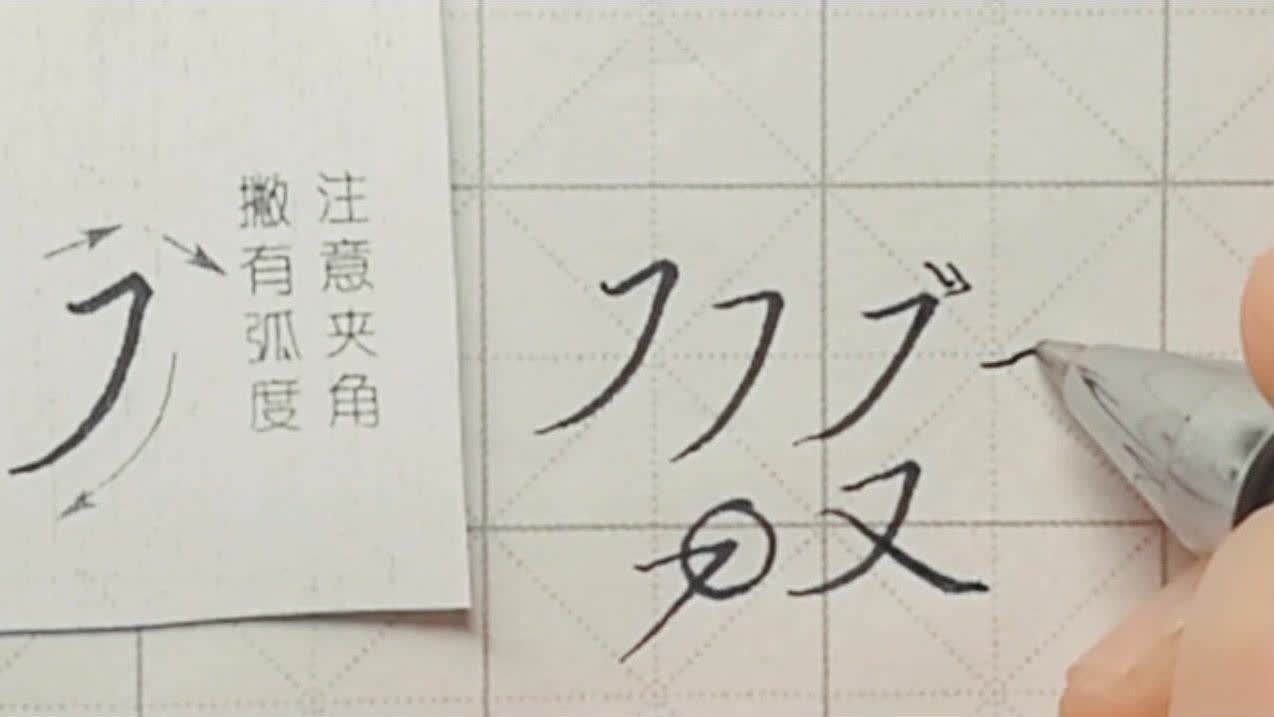 注意夹角
撇有弧度
又